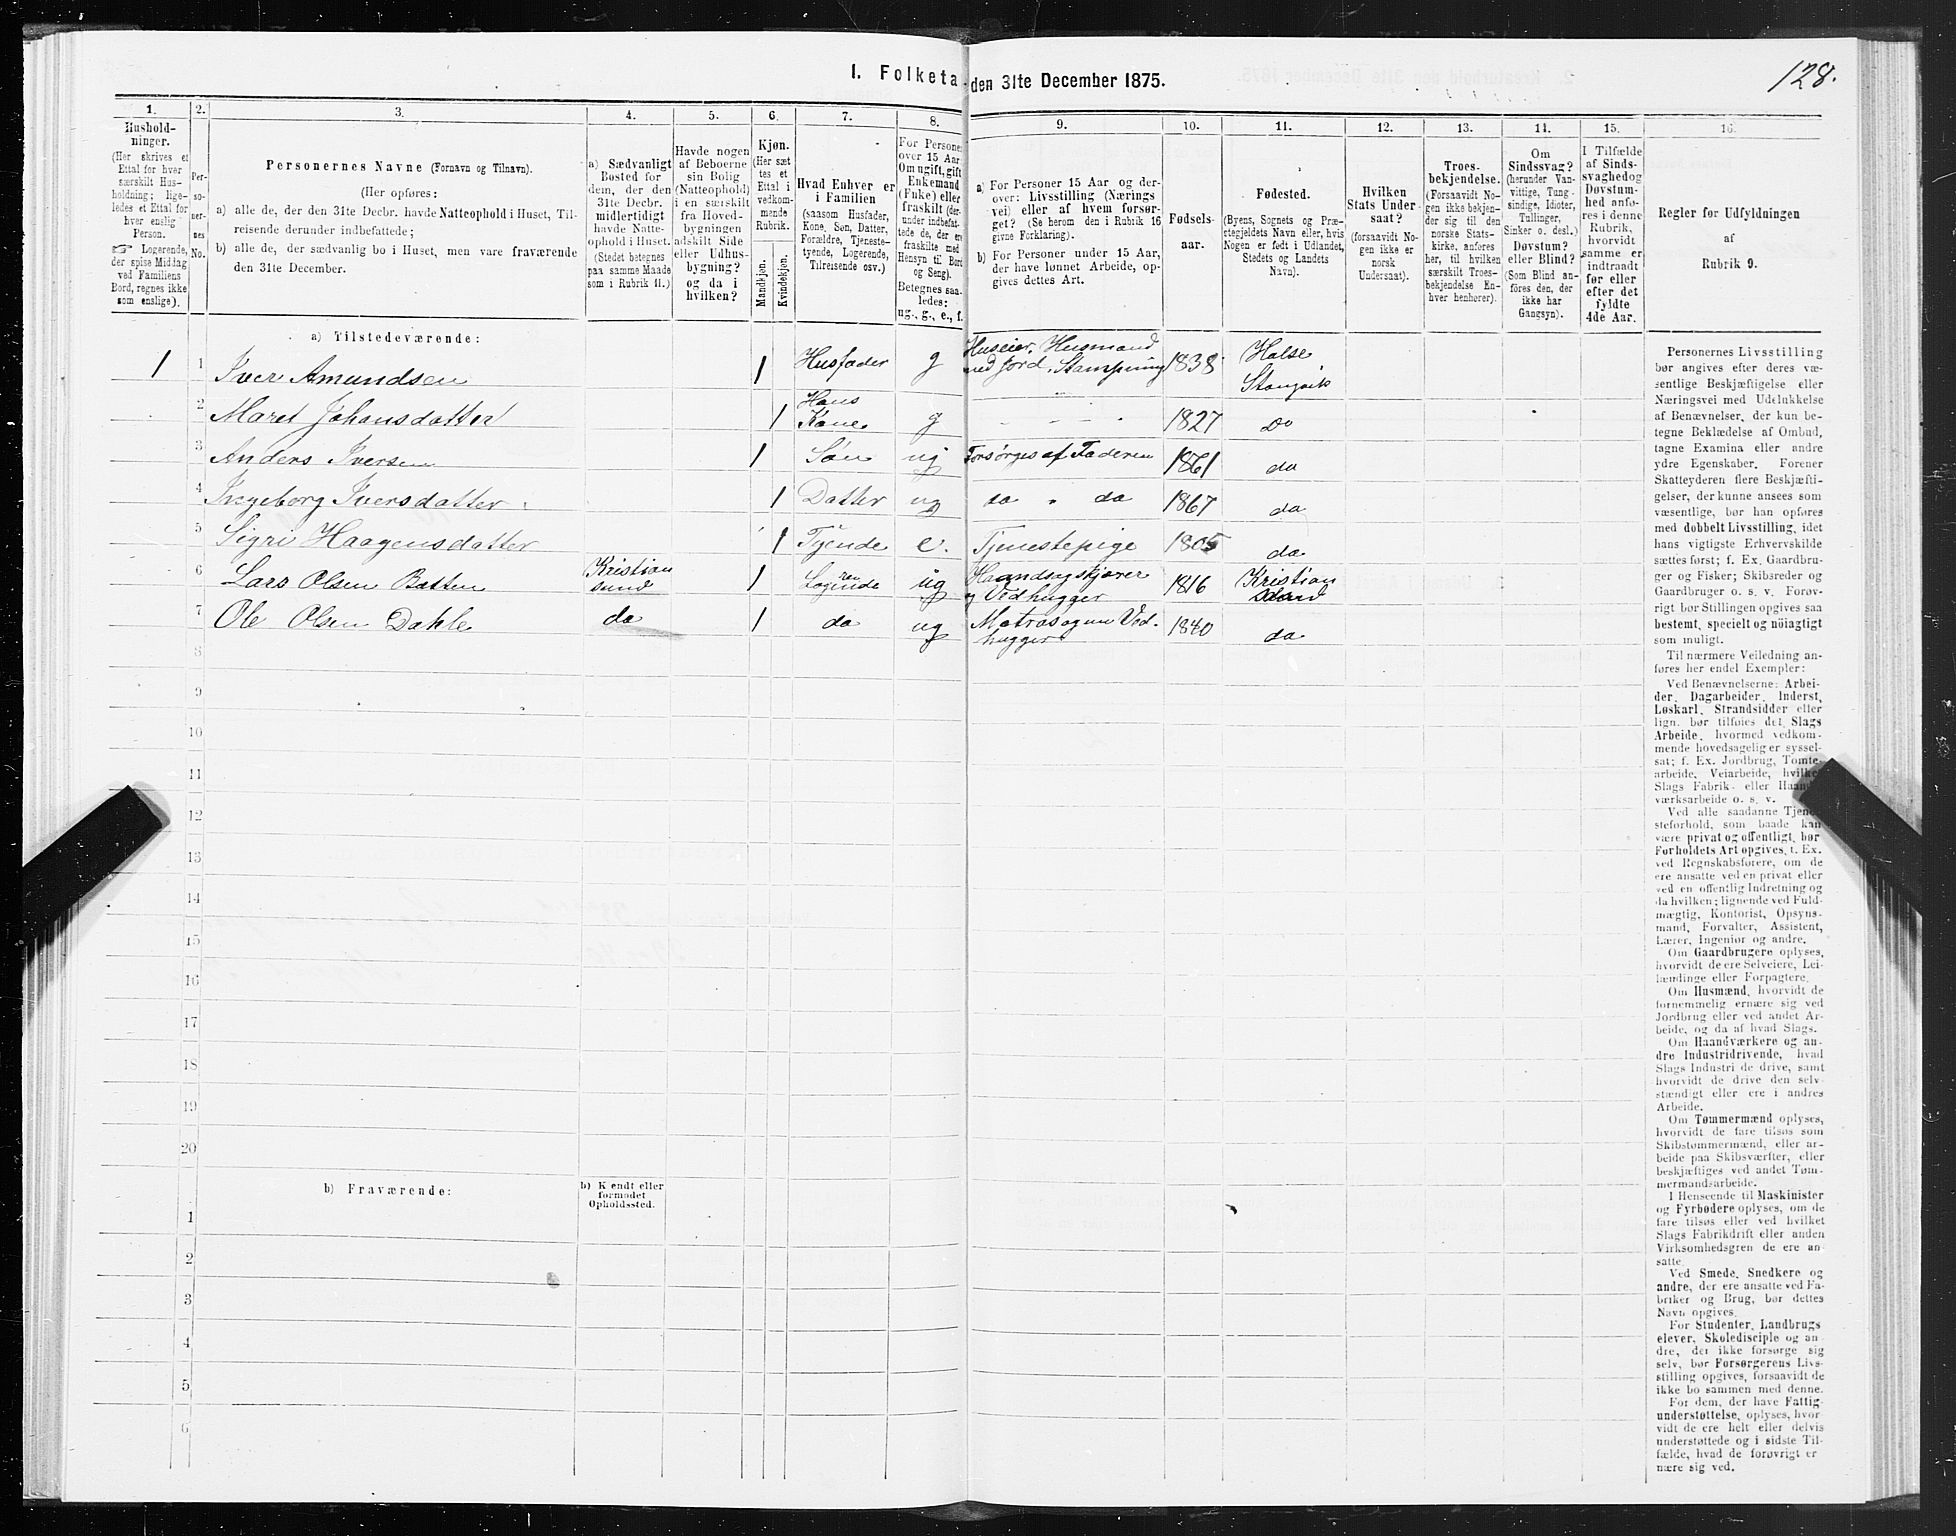 1. Folketa
den 31te December 1875.
128.
1.
Hushold-
ninger.
(Her skrives et
Ettal for hver
særskilt Hus-
holdning; lige-
ledes et Ettal for
hver enslig
Person.
☞ Logerende,
der spise Middag
ved Familiens
Bord, regnes ikke
som enslige).
2.
Per-
so-
ner-
nes
No.
3.
Personernes Navne (Fornavn og Tilnavn).
(Her opføres:
a) alle de, der den 31te Decbr. havde Natteophold i Huset, Til-
reisende derunder indbefattede;
b) alle de, der sædvanlig bo i Huset, men vare fraværende
den 31te December.
4.
a) Sædvanligt
Bosted for
dem, der den
31te Decbr.
midlertidigt
havde Natte-
ophold i Huset.
(Stedet betegnes
paa samme Maade
som i Rubrik 11.)
5.
Havde nogen
af Beboerne
sin Bolig
(Natteophold)
i en særskilt
fra Hoved-
bygningen
adskilt Side
eller Udhus-
bygning?
og da i
hvilken?
6.
Kjøn.
(Her sæt
tes et
Ettal i
vedkom-
mende
Rubrik.
Mandkjøn.
Kvindekjøn.
7.
Hvad Enhver er
i Familien
(saasom Husfader,
Kone, Søn, Datter,
Forældre, Tjeneste-
tyende, Logerende,
Tilreisende osv.)
8.
For Persone
over 15 Aar:
Om ugift, gift
Enkemand
(Enke) eller
fraskilt (der-
under indbefat-
tede de, der ere
fraskilte med
Hensyn til Bord
og Seng).
Betegnes saa-
ledes:
ug., g., e., f.
9.
a) For Personer 15 Aar og der-
over: Livsstilling (Nærings
vei) eller af hvem forsør-
get? (Se herom den i Rubrik 16
givne Forklaring).
b) For Personer under 15 Aar,
der have lønnet Arbeide, op-
gives dettes Art.
10.
Fødsels-
aar.
11.
Fødested.
(Byens, Sognets og Præ-
stegjeldets Navn eller, hvis
Nogen er født i Udlandet,
Stedets og Landets
Navn).
12.
Hvilken
Stats Under
saat?
(forsaavidt No-
gen ikke er
norsk
Undersaat).
13.
Troes-
bekjendelse.
(Forsaavidt No-
gen ikke bekjen-
der sig til den
norske Stats-
kirke, anføres
her, til hvilken
særskilt Troes-
bekjendelse En-
hver henhører).
14.
Om
Sindssvag?
(herunder Van-
vittige, Tung-
sindige, Idioter,
Tullinger,
Sinker o. desl.)
Døvstum?
eller Blind?
(Som Blind an-
føres den, der
ikke har
Gangsyn).
15.
I Tilfælde
af Sinds-
svaghed og
Døvstum-
hed anfø-
res i denne
Rubrik,
hvorvidt
samme er
indtraadt
før eller
efter det
fyldte
4de Aar.
16.
Regler for Udfyldningen
af
Rubrik 9.
a) Tilstedeværende:
1 1 Iver Amundsen 1 Husfader g Huseier, Husmand med Jord, Stampning 1838 Halse Stangvik
2 Maret Johansdatter 1 Hans Kone g 1827 Do
3 Anders Iversen 1 Søn ug Forsørges af Faderen 1861 do
4 Ingeborg Iversdatter 1 Datter ug do " do 1867 do
5 Sigri Haagensdatter 1 Tyende e. Tjenestepige 1805 do
6 Lars Olsen Batten Kristian sund 1 Logerende ug og Vedhugger 1816 Kristian sund
7 Ole Olsen Dahle do 1 do ug Matros og nu Ved- hugger 1840 do
8
9
10
11
12
13
14
15
16
17
18
19
20
b) Fraværende:
b) Kjendt eller
formodet
Opholdssted.
1
2
3
4
5
6
Personernes Livsstilling
bør angives efter deres væ-
sentlige Beskjæftigelse eller
Næringsvei med Udelukkelse
af Benævnelser, der kun be-
tegne Beklædelse af Ombud,
tagne Examina eller andre
ydre Egenskaber. Forener
Skatteyderen flere Beskjæfti-
gelser, der kunne ansees som
væsentlige, bør han opføres
med dobbelt Livsstilling, idet
hans vigtigste Erhvervskilde
sættes først; f. Ex. Gaardbru-
ger og Fisker; Skibsreder og
Gaardbruger o. s. v. Forøv-
rigt bør Stillingen opgives saa
bestemt, specielt og nöiagtigt
som muligt.
Til nærmere Veiledning an-
føres her endel Exempler:
Ved Benævnelserne: Arbei-
der, Dagarbeider, Inderst,
Løskarl, Strandsidder eller
lign. bør tilføies det Slags
Arbeide, hvormed vedkom-
mende hovedsagelig er syssel-
sat; f. Ex. Jordbrug, Tomte-
arbeide, Veiarbeide, hvilket
Slags Fabrik- eller Haand-
værksarbeide o. s. v.
Ved alle saadanne Tjene-
steforhold, som baade kan
være privat og offentligt, bør
Forholdets Art opgives, f. Ex.
ved Regnskabsførere, om de
ere ansatte ved en privat eller
ved en offentlig Indretning og
da hvilken; lignende ved Fuld-
mægtig, Kontorist, Opsyns-
mand, Forvalter, Assistent,
Lærer, Ingeniør og andre.
Om Gaardbrugere oplyses,
hvorvidt de ere Selveiere, Lei-
lændinge eller Forpagtere.
Om Husmænd, hvorvidt de
fornemmelig ernære sig ved
Jordbrug eller ved andet Ar-
beide, og da af hvad Slags.
Om Haandværkere og an-
dre Industridrivende, hvad
Slags Industri de drive, samt
hvorvidt de drive den selv-
stændigt eller ere i andres
Arbeide.
Om Tømmermænd oplyses,
hvorvidt de fare tilsøs som
Skibstømmermænd, eller ar-
beide paa Skibsværfter, eller
beskjæftiges ved andet Tøm-
mermandsarbeide.
I Henseende til Maskinister
og Fyrbødere oplyses, om de
fare tilsøs eller ved hvilket
Slags Fabrikdrift eller anden
Virksomhedsgren de ere an-
satte.
Ved Smede, Snedkere og
andre, der ere ansatte ved Fa-
briker og Brug, bør dettes
Navn opgives.
For Studenter, Landbrugs
elever, Skoledisciple og an-
dre, der ikke forsørge sig
selv, bør Forsørgerens Livs-
stilling opgives, forsaavidt de
ikke bo sammen med denne.
For dem, der have Fattig-
understøttelse, oplyses, hvor-
vidt de ere helt eller delvis
understøttede og i sidste Til-
fælde, hvad de forøvrigt er
nære sig ved.